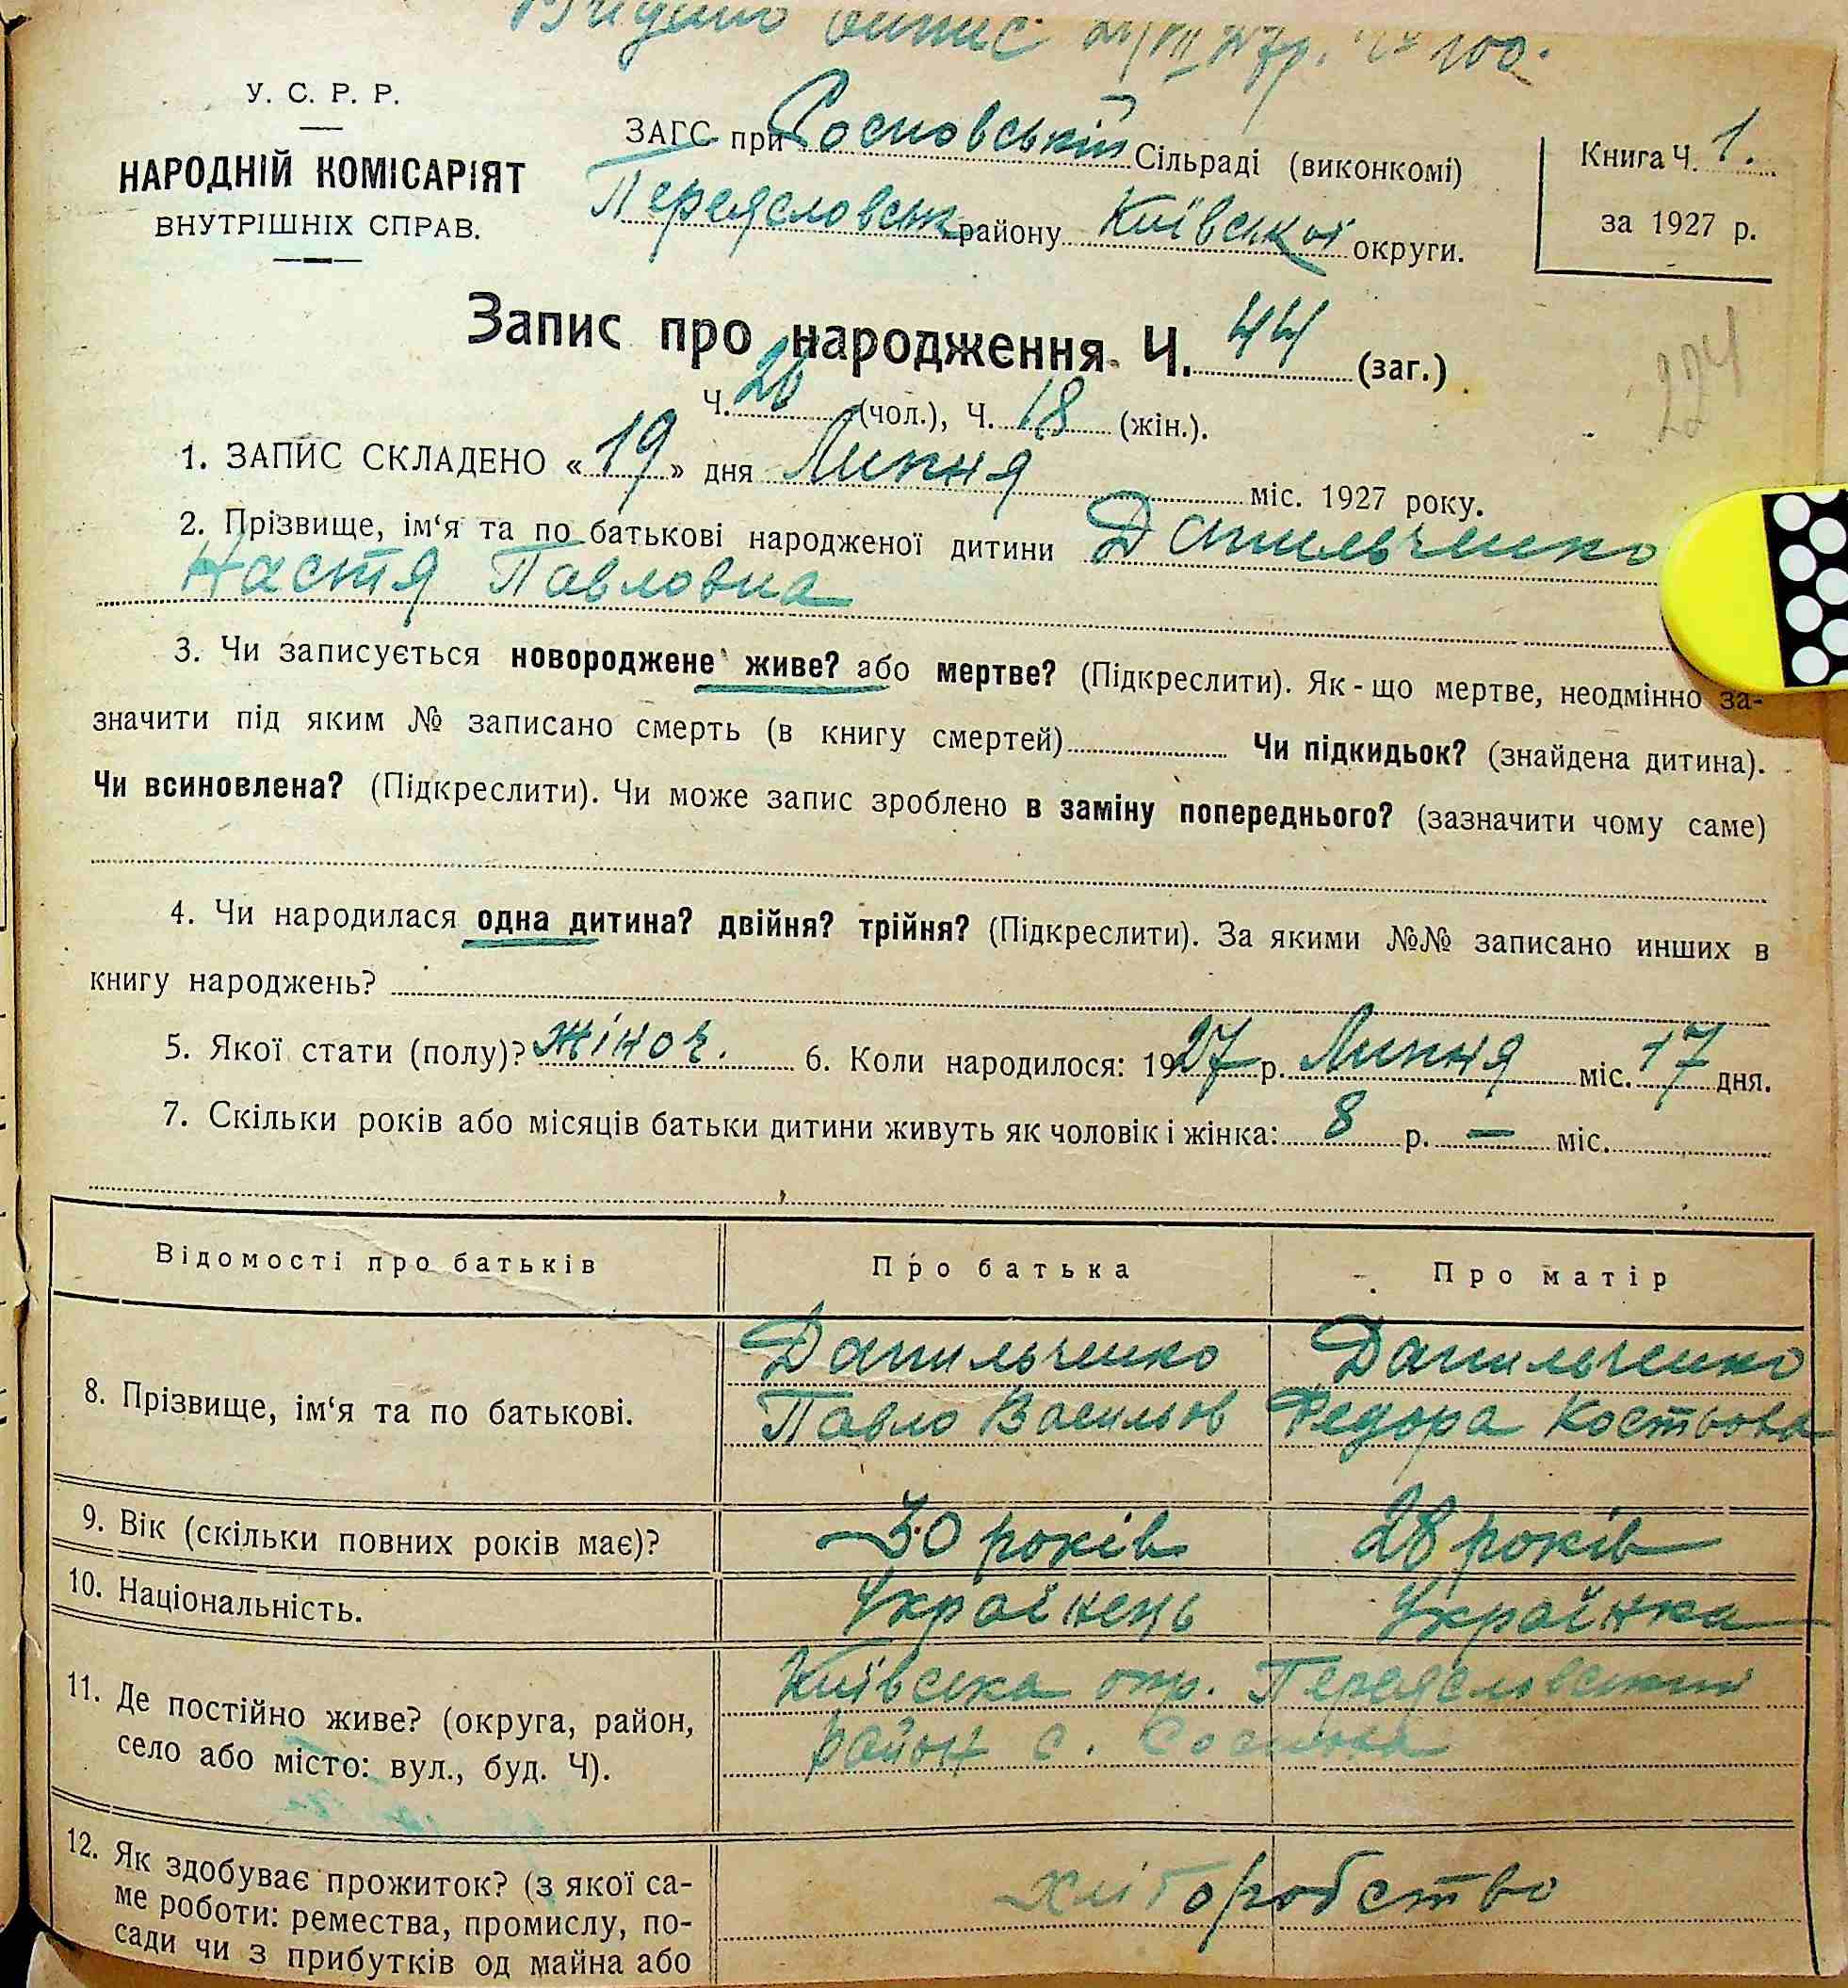 Видано витис 21/VII 27р. Ч 100.
У. С. Р. Р.
НАРОДНІЙ КОМІСАРІЯТ
ВНУТРІШНІХ СПРАВ.
ЗАГС при Сосновській Сільраді (виконкомі)
Переясловськ району Київської округи.
Книга Ч. 1.
за 1927 р.
Запис про народження Ч. 44 (заг.)
Ч. 26 (чол.), Ч. 18 (жін.).
224
1. ЗАПИС СКЛАДЕНО « 19 » дня Липня міс. 1927 року.
2. Прізвище, ім‘я та по батькові народженої дитини Данильченко
Настя Павловна
3. Чи записується новороджене живе? або мертве? (Підкреслити). Як-що мертве, неодмінно за-
значити під яким № записано смерть (в книгу смертей) Чи підкидьок? (знайдена дитина).
Чи всиновлена? (Підкреслити). Чи може запис зроблено в заміну попереднього? (зазначити чому саме)
4. Чи народилася одна дитина? двійня? трійня? (Підкреслити). За якими №№ записано инших в
книгу народжень?
5. Якої стати (полу)? жіноч. 6. Коли народилося: 1927 р. Липня міс. 17 дня.
7. Скільки років або місяців батьки дитини живуть як чоловік і жінка: 8 р. — міс.
Відомості про батьків Про батька Про матір
8. Прізвище, ім‘я та по батькові.
Данильченко
Павло Васильов
Данильченко
Федора Костьова
9. Вік (скільки повних років має)? 30 років 28 років
10. Національність. Українець Українка
11. Де постійно живе? (округа, район,
село або місто: вул., буд. Ч).
Київська окр. Переясловський
район с. Соснова
12. Як здобуває прожиток? (з якої са-
ме роботи: ремества, промислу, по-
сади чи з прибутків од майна або
хліборобство